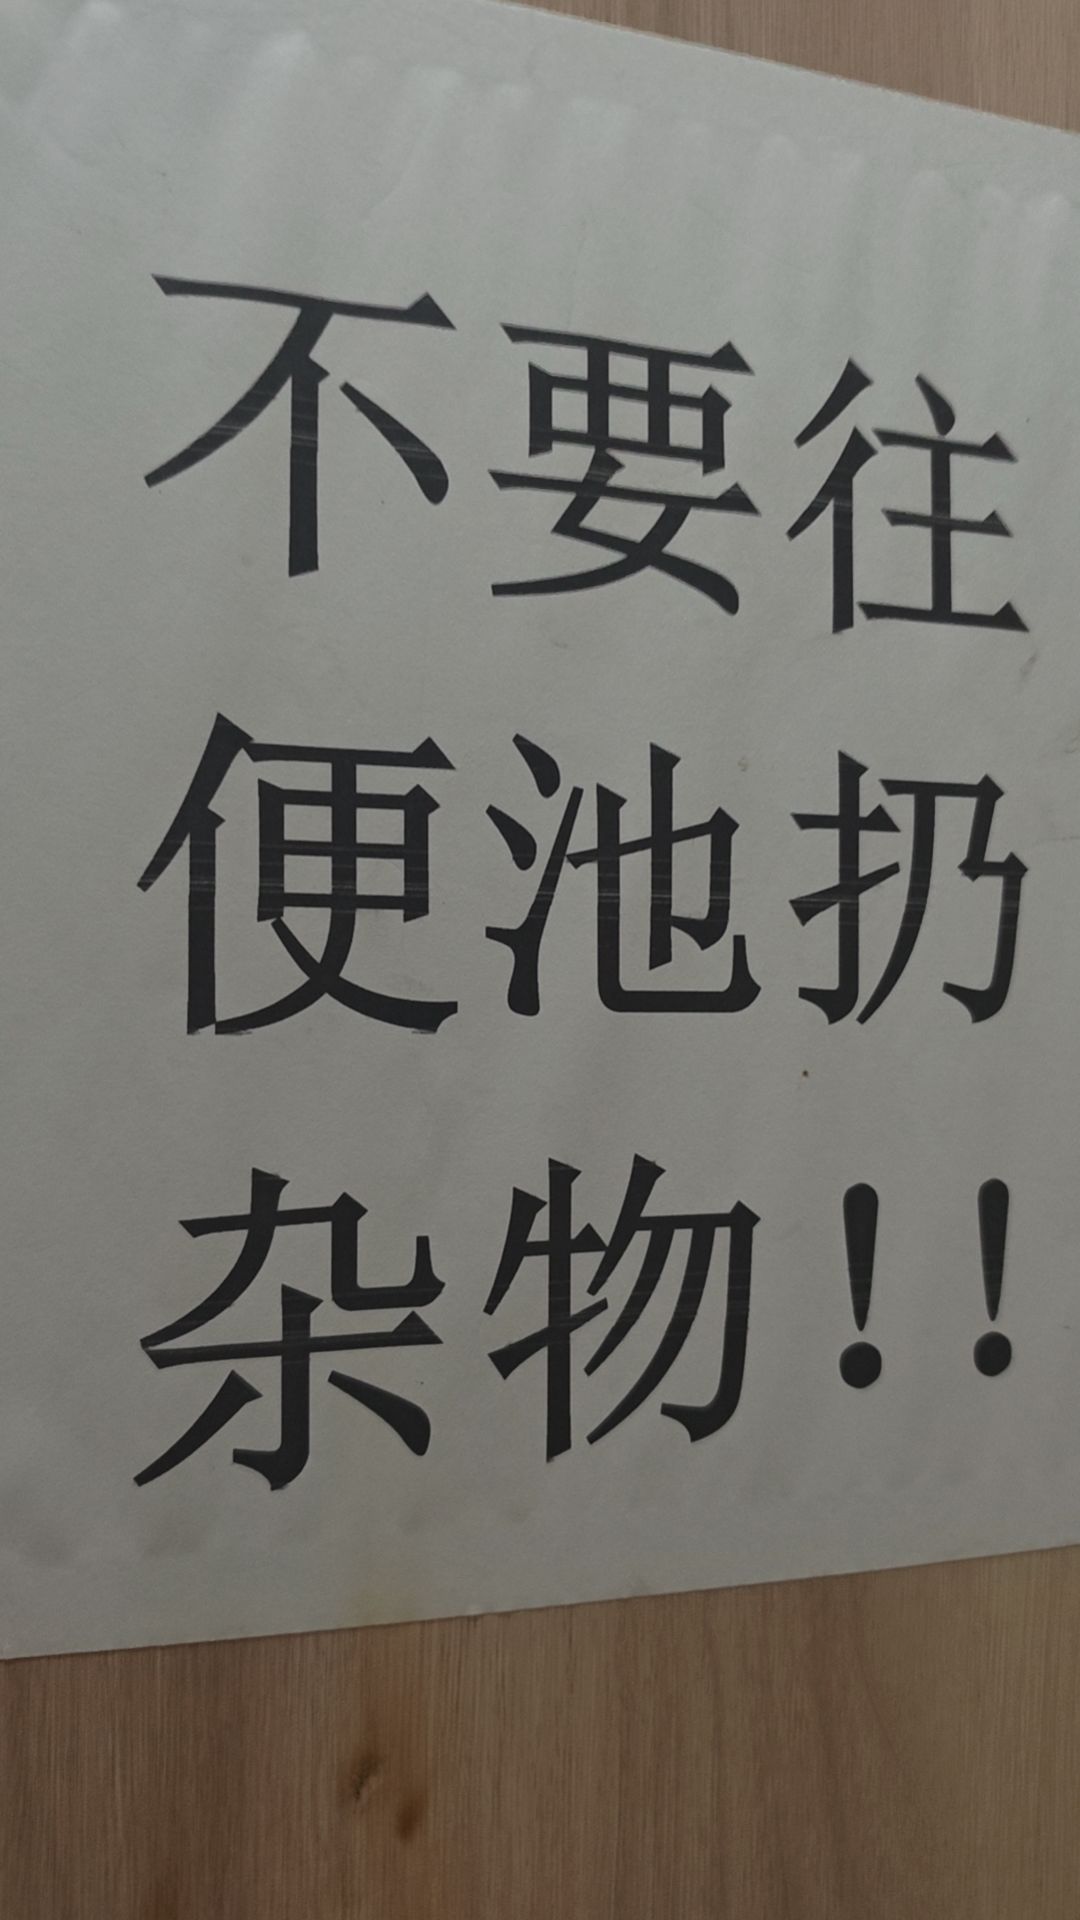 不要往
便池扔
杂物！！